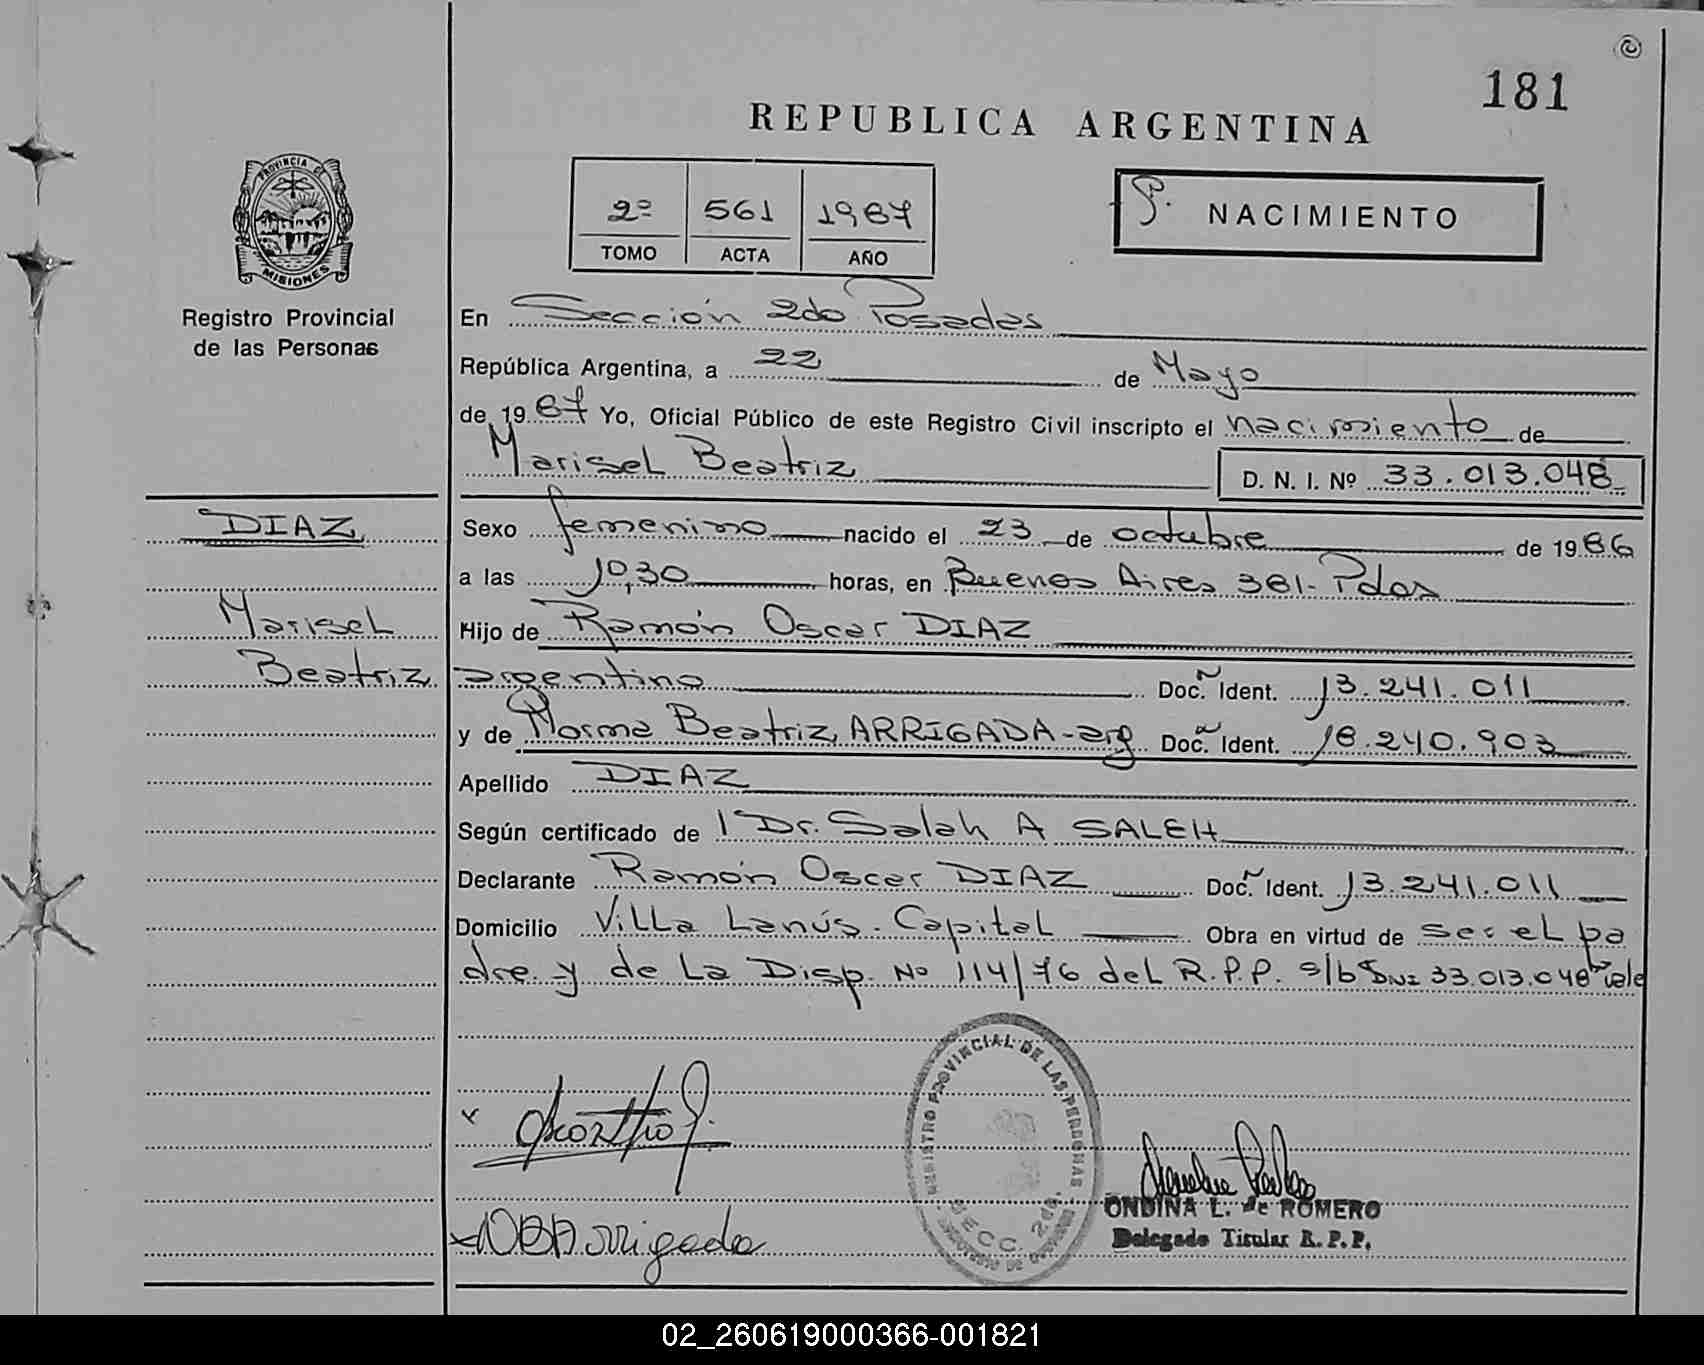 181
REPUBLICA ARGENTINA
PROVINCIA DE
MISIONES
Registro Provincial
de las Personas
2º 561 1987
TOMO ACTA AÑO
NACIMIENTO
En Sección 2do Posadas
República Argentina, a 22 de Mayo
de 1987 Yo, Oficial Público de este Registro Civil inscripto el nacimiento de
Marisel Beatriz D. N. I. Nº 33.013.048
DIAZ
Marisel
Beatriz
Sexo femenino nacido el 23 de octubre de 1986
a las 10,30 horas, en Buenos Aires 381- Pdas
Hijo de Ramón Oscar DIAZ
argentino Doc. Ident. 13.241.011
y de Norma Beatriz ARRIGADA-arg Doc. Ident. 18.240.903
Apellido DIAZ
Según certificado de Dr. Salah A SALEH
Declarante Ramón Oscar DIAZ Doc. Ident. 13.241.011
Domicilio Villa Lanús. Capital Obra en virtud de ser el pa
dre y de la Disp. Nº 114/76 del R.P.P. s/b DNI 33.013.048 vale
REGISTRO PROVINCIAL DE LAS PERSONAS
SECC. 2da.
NBArrigada
ONDINA L. de ROMERO
Delegado Titular R. P. P.
02_260619000366-001821